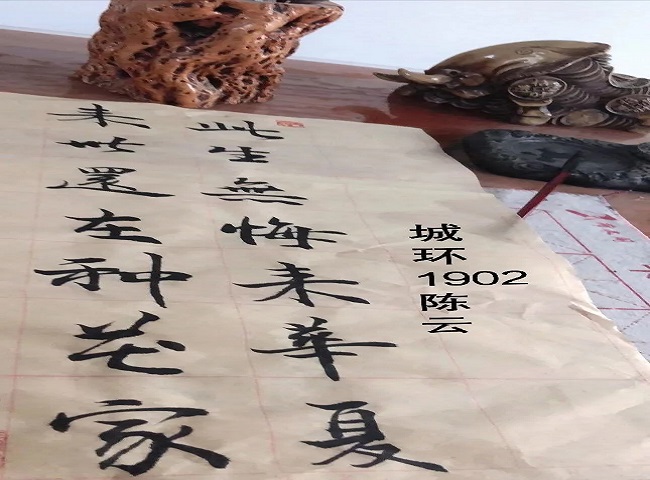 此生無悔来華夏
来世還在种花家
城环1902陈云